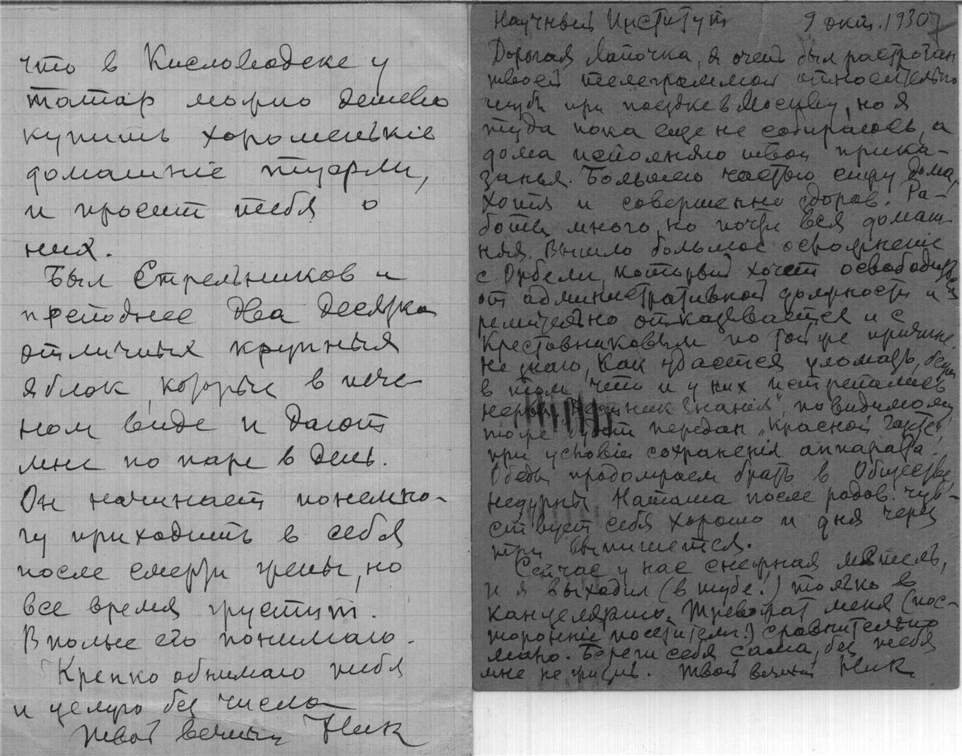 что в Кисловодске у
татар можно дешево
купить хорошенькіе
домашніе туфли,
и просит тебя о
них.
Был Стрельников и
преподнес два десятка
отличных крупных
яблок, которые в пече-
ном виде и дают
мне по паре в день.
Он начинает понемно-
гу приходить в себя
после смерти жены, но
все время грустит.
Вполне его понимаю.
Крепко обнимаю тебя
и целую без числа
Твой вечный Ник
Научный Институт 9 окт. 1930
Дорогая Лапочка, я очень был растроган
твоей телеграммой относительно
шубы при поездке в Москву, но я
туда пока еще не собираюсь, а
дома исполняю твои прика-
занья. Большею частью сижу дома,
хотя и совершенно здоров. Ра-
боты много, но почти вся домаш-
няя. Вышло большое осложненіе
с Орбели, который хочет освободиться
от административной должности и
решительно отказывается и с
Крестовниковым по той же причине.
Не знаю, как удастся уломать,
в том, что и у них истрепались
нервы. Вестник Знанія", повидимому
тоже будет передан „Красной Газете"
при условіи сохраненія аппарата.
Обеды продолжаем брать в Обществе,
недурны. Наташа после родов чув-
ствует себя хорошо и дня через
три выпишется.
Сейчас у нас снежная мятель,
и я выходил (в шубе!) только в
канцелярію. Тревожат меня (пос-
торонніе посетители) сравнительно
мало. Береги себя сама, без тебя
мне не жизнь. Твой вечный Ник